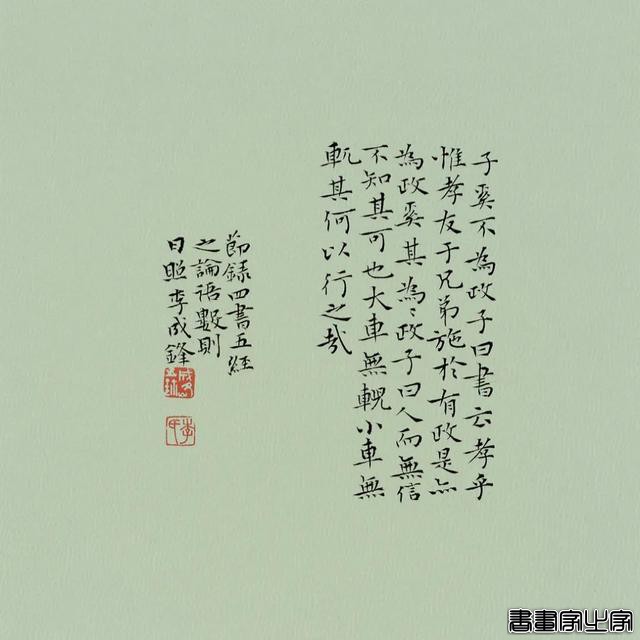 子奚不為政子曰書云孝乎
惟孝友于兄弟施於有政是亦
為政奚其為〻政子曰人而無信
不知其可也大車無輗小車無
軏其何以行之哉
節錄四書五經
之論語數則
日照李成鋒
書畫家之家